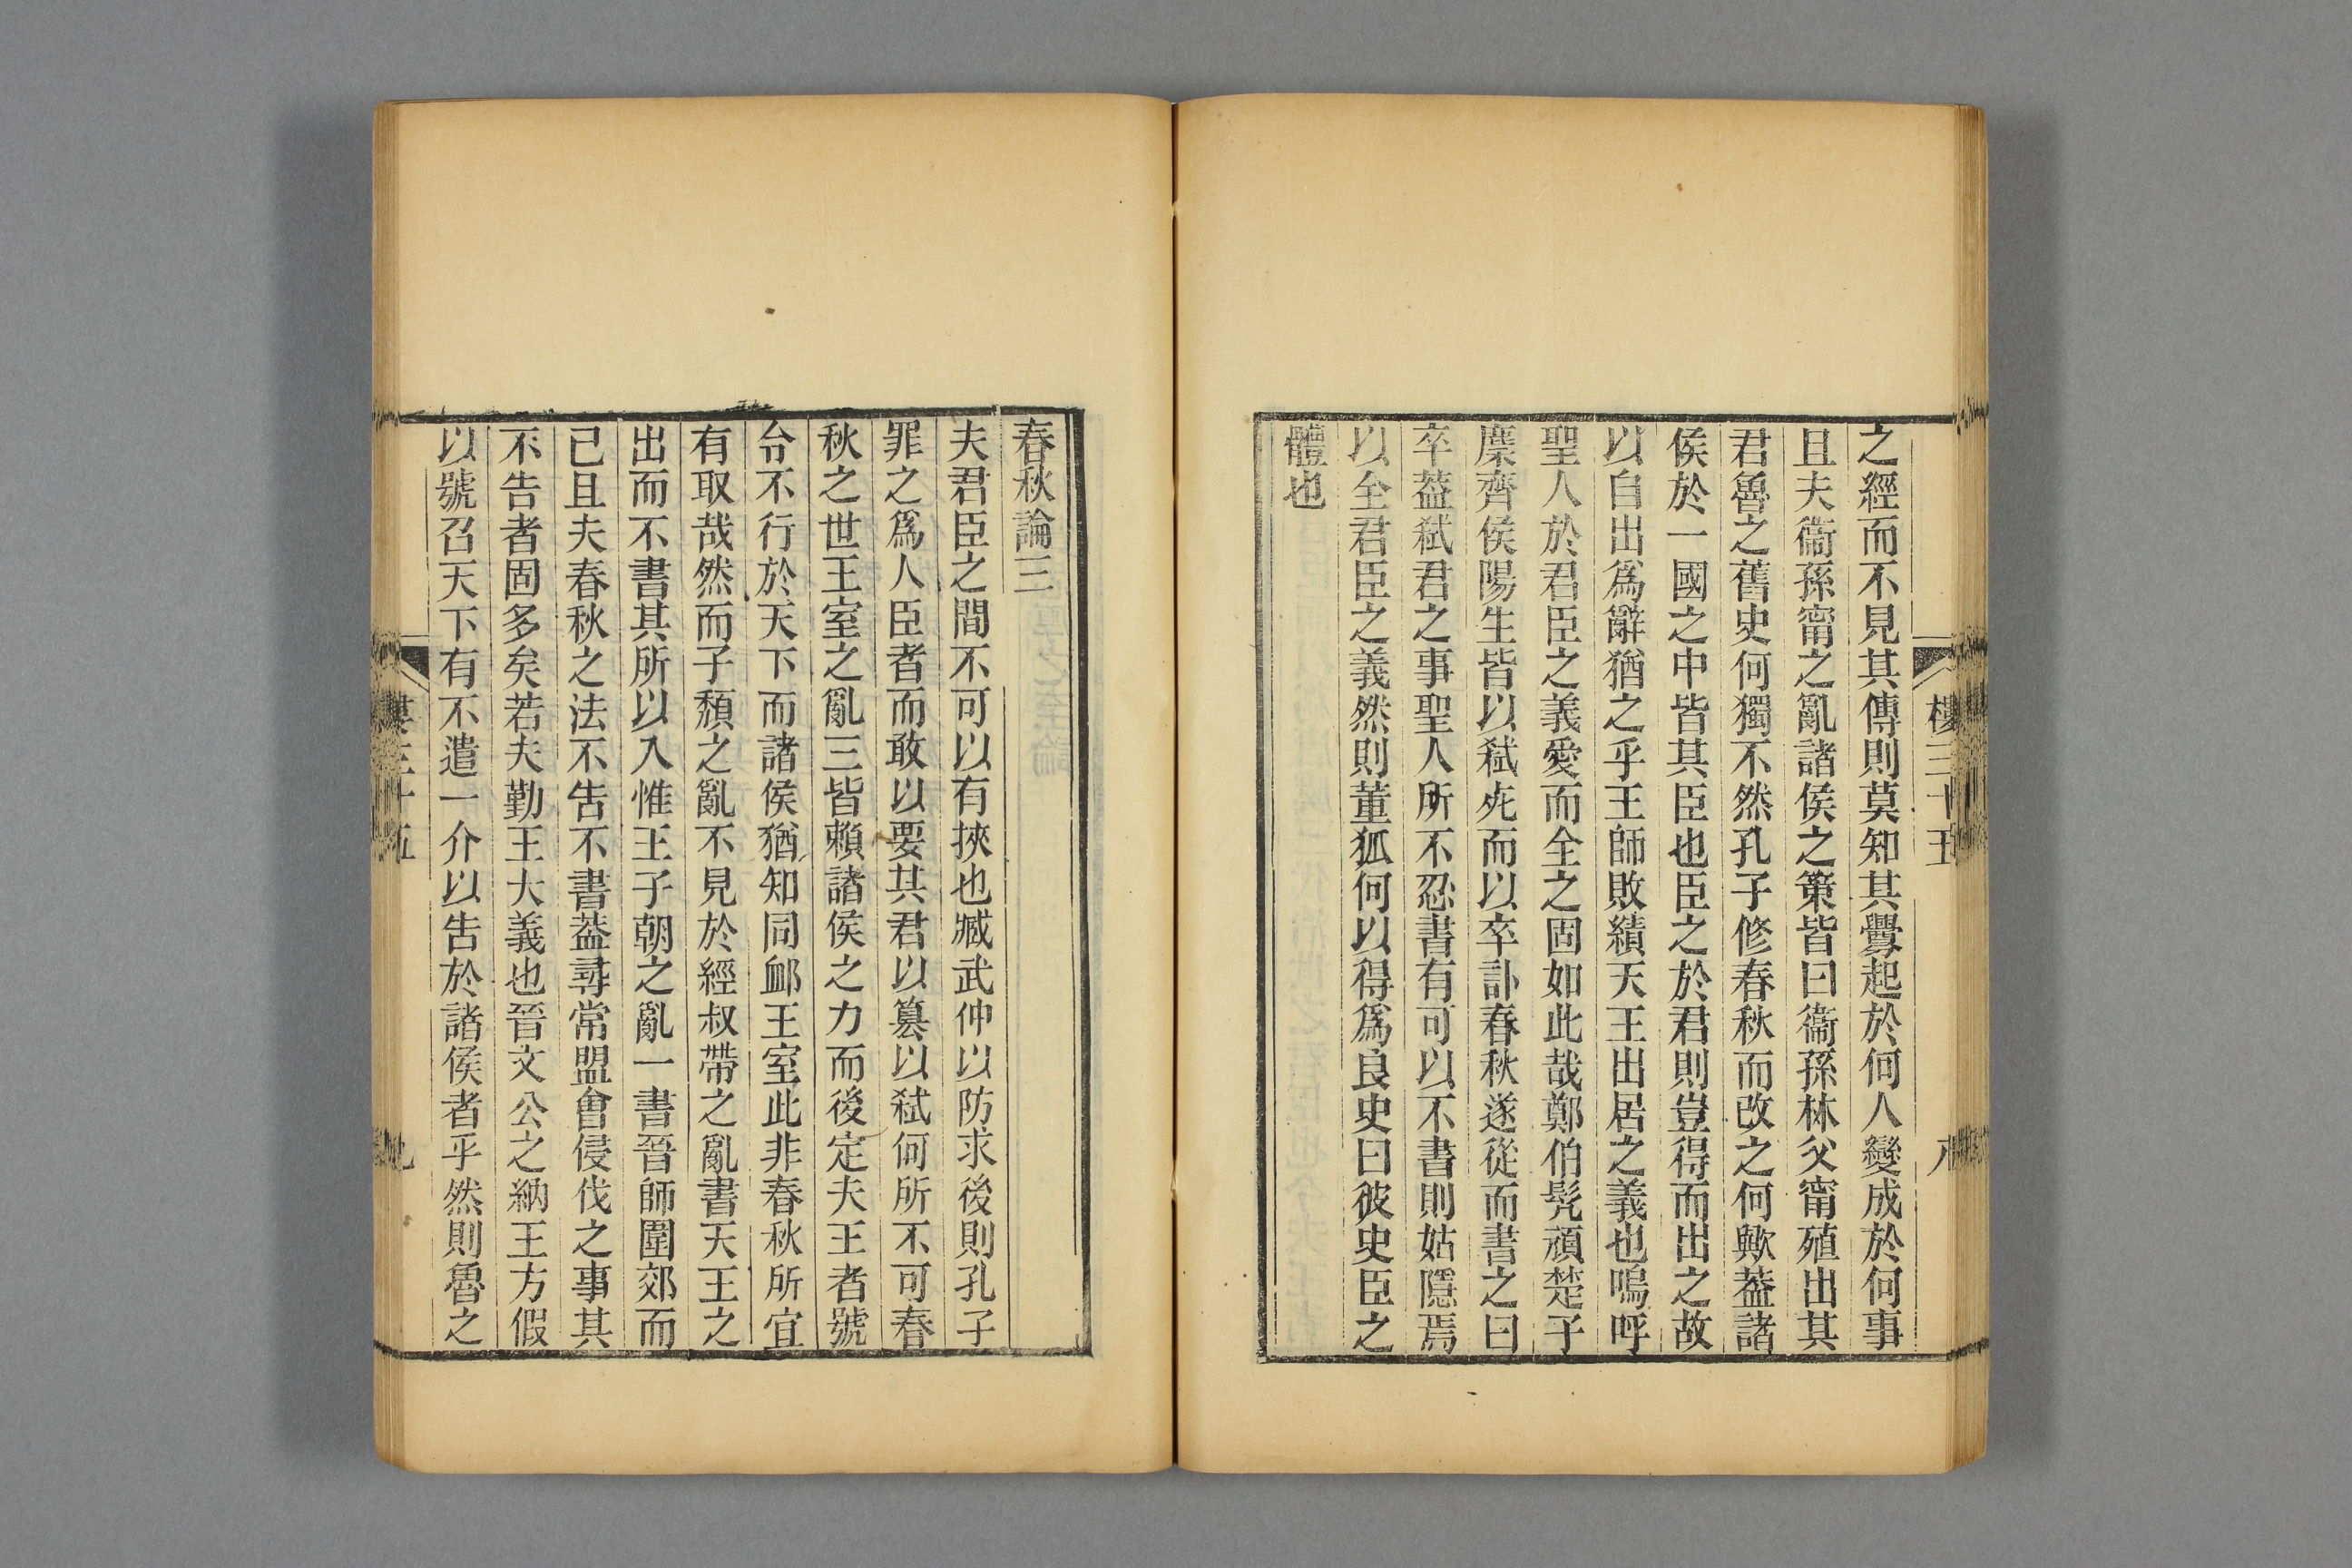 之經而不見其傳則莫知其釁起於何人變成於何事
且夫衞孫甯之亂諸侯之策皆曰衞孫林父甯殖出其
君魯之舊史何獨不然孔子修春秋而改之何歟葢諸
侯於一國之中皆其臣也臣之於君則豈得而出之故
以自出爲辭猶之乎王師敗績天王出居之義也嗚呼
聖人於君臣之義愛而全之固如此哉鄭伯髠頑楚子
麇齊侯陽生皆以弒死而以卒訃春秋遂從而書之曰
卒葢弒君之事聖人所不忍書有可以不書則姑隱焉
以全君臣之義然則董狐何以得爲良史曰彼史臣之
體也
樓三十五
八
春秋論三
夫君臣之間不可以有挾也臧武仲以防求後則孔子
罪之爲人臣者而敢以要其君以簒以弒何所不可春
秋之世王室之亂三皆賴諸侯之力而後定夫王者號
令不行於天下而諸侯猶知同卹王室此非春秋所宜
有取哉然而子頹之亂不見於經叔帶之亂書天王之
出而不書其所以入惟王子朝之亂一書晉師圍郊而
已且夫春秋之法不告不書葢尋常盟會侵伐之事其
不告者固多矣若夫勤王大義也晉文公之納王方假
以號召天下有不遣一介以告於諸侯者乎然則魯之
樓三十五
九